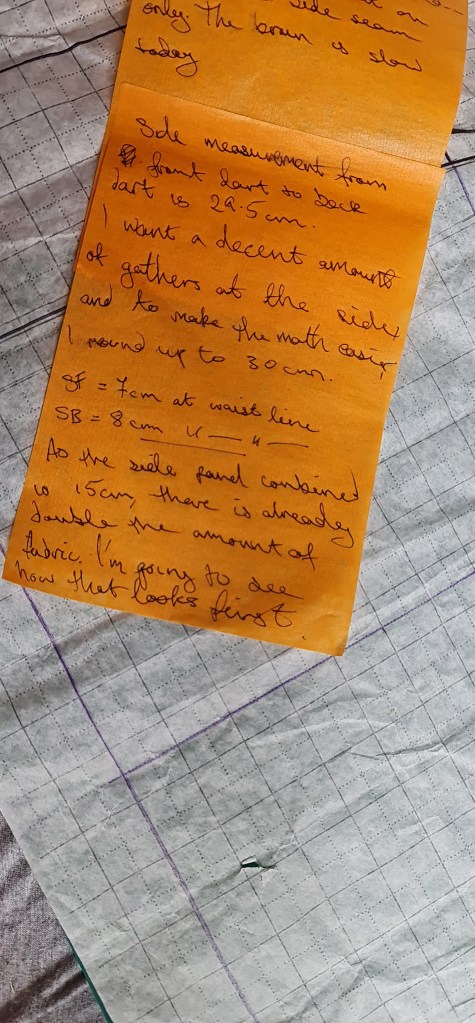 side seam
only. The brain is slow
today
Side measurement from
front dart to back
dart is 29.5cm.
I want a decent amount
of gathers at the sides
and to make the math easier,
I round up to 30cm.
SF = 7cm at waist line
SB = 8cm " — " —
As the side panel combined
is 15cm, there is already
double the amount of
fabric. I'm going to see
how that looks first.